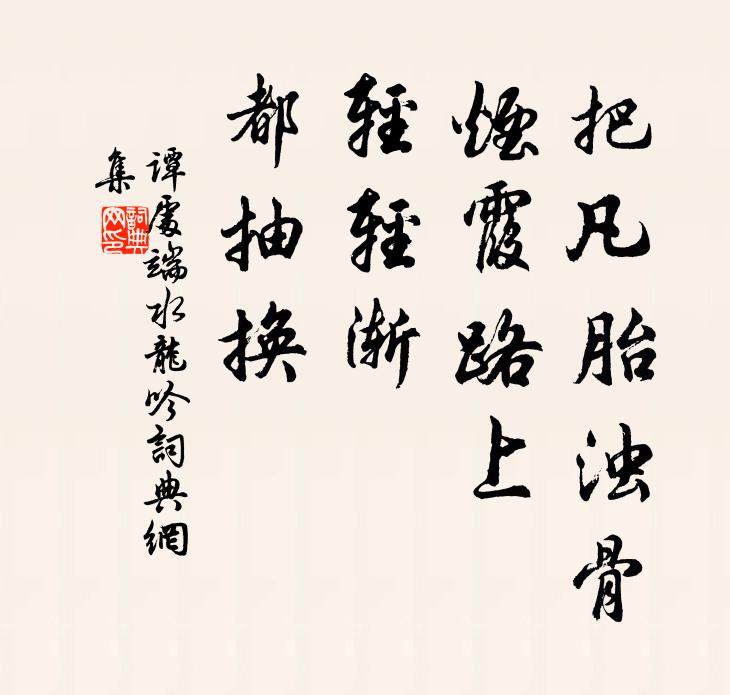 把凡胎浊骨
煙霞路上
輕輕漸
都抽換
谭處端水龍吟詞典網
集
詞典
网印